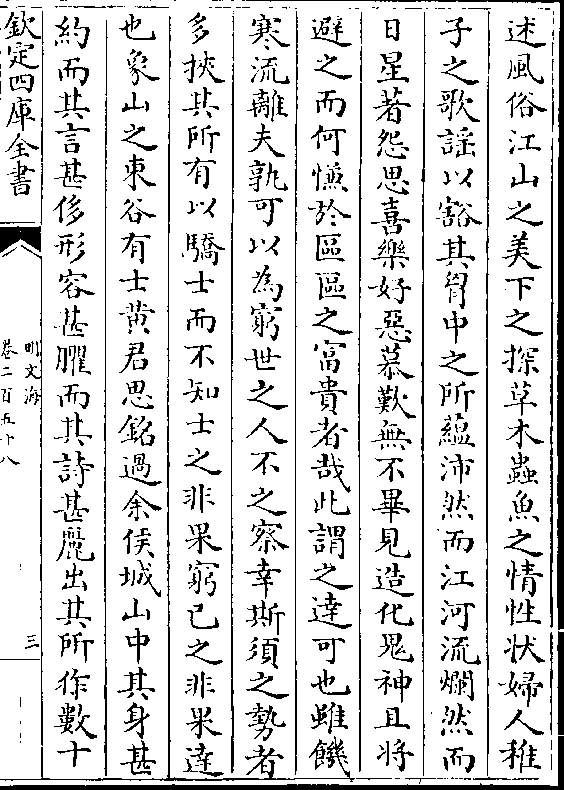 述風俗江山之美下之探草木蟲魚之情性狀婦人稚
子之歌謡以豁其胷中之所蘊沛然而江河流爛然而
日星著怨思喜樂好惡慕歎無不畢見造化鬼神且將
避之而何慊於區區之富貴者哉此謂之達可也雖饑
寒流離夫孰可以為窮世之人不之察幸斯須之勢者
多挾其所有以驕士而不知士之非果窮已之非果達
也象山之東谷有士黄君思銘過余侯城山中其身甚
約而其言甚侈形容甚臞而其詩甚麗出其所作數十
欽定四庫全書
明文海
卷二百五十八
三